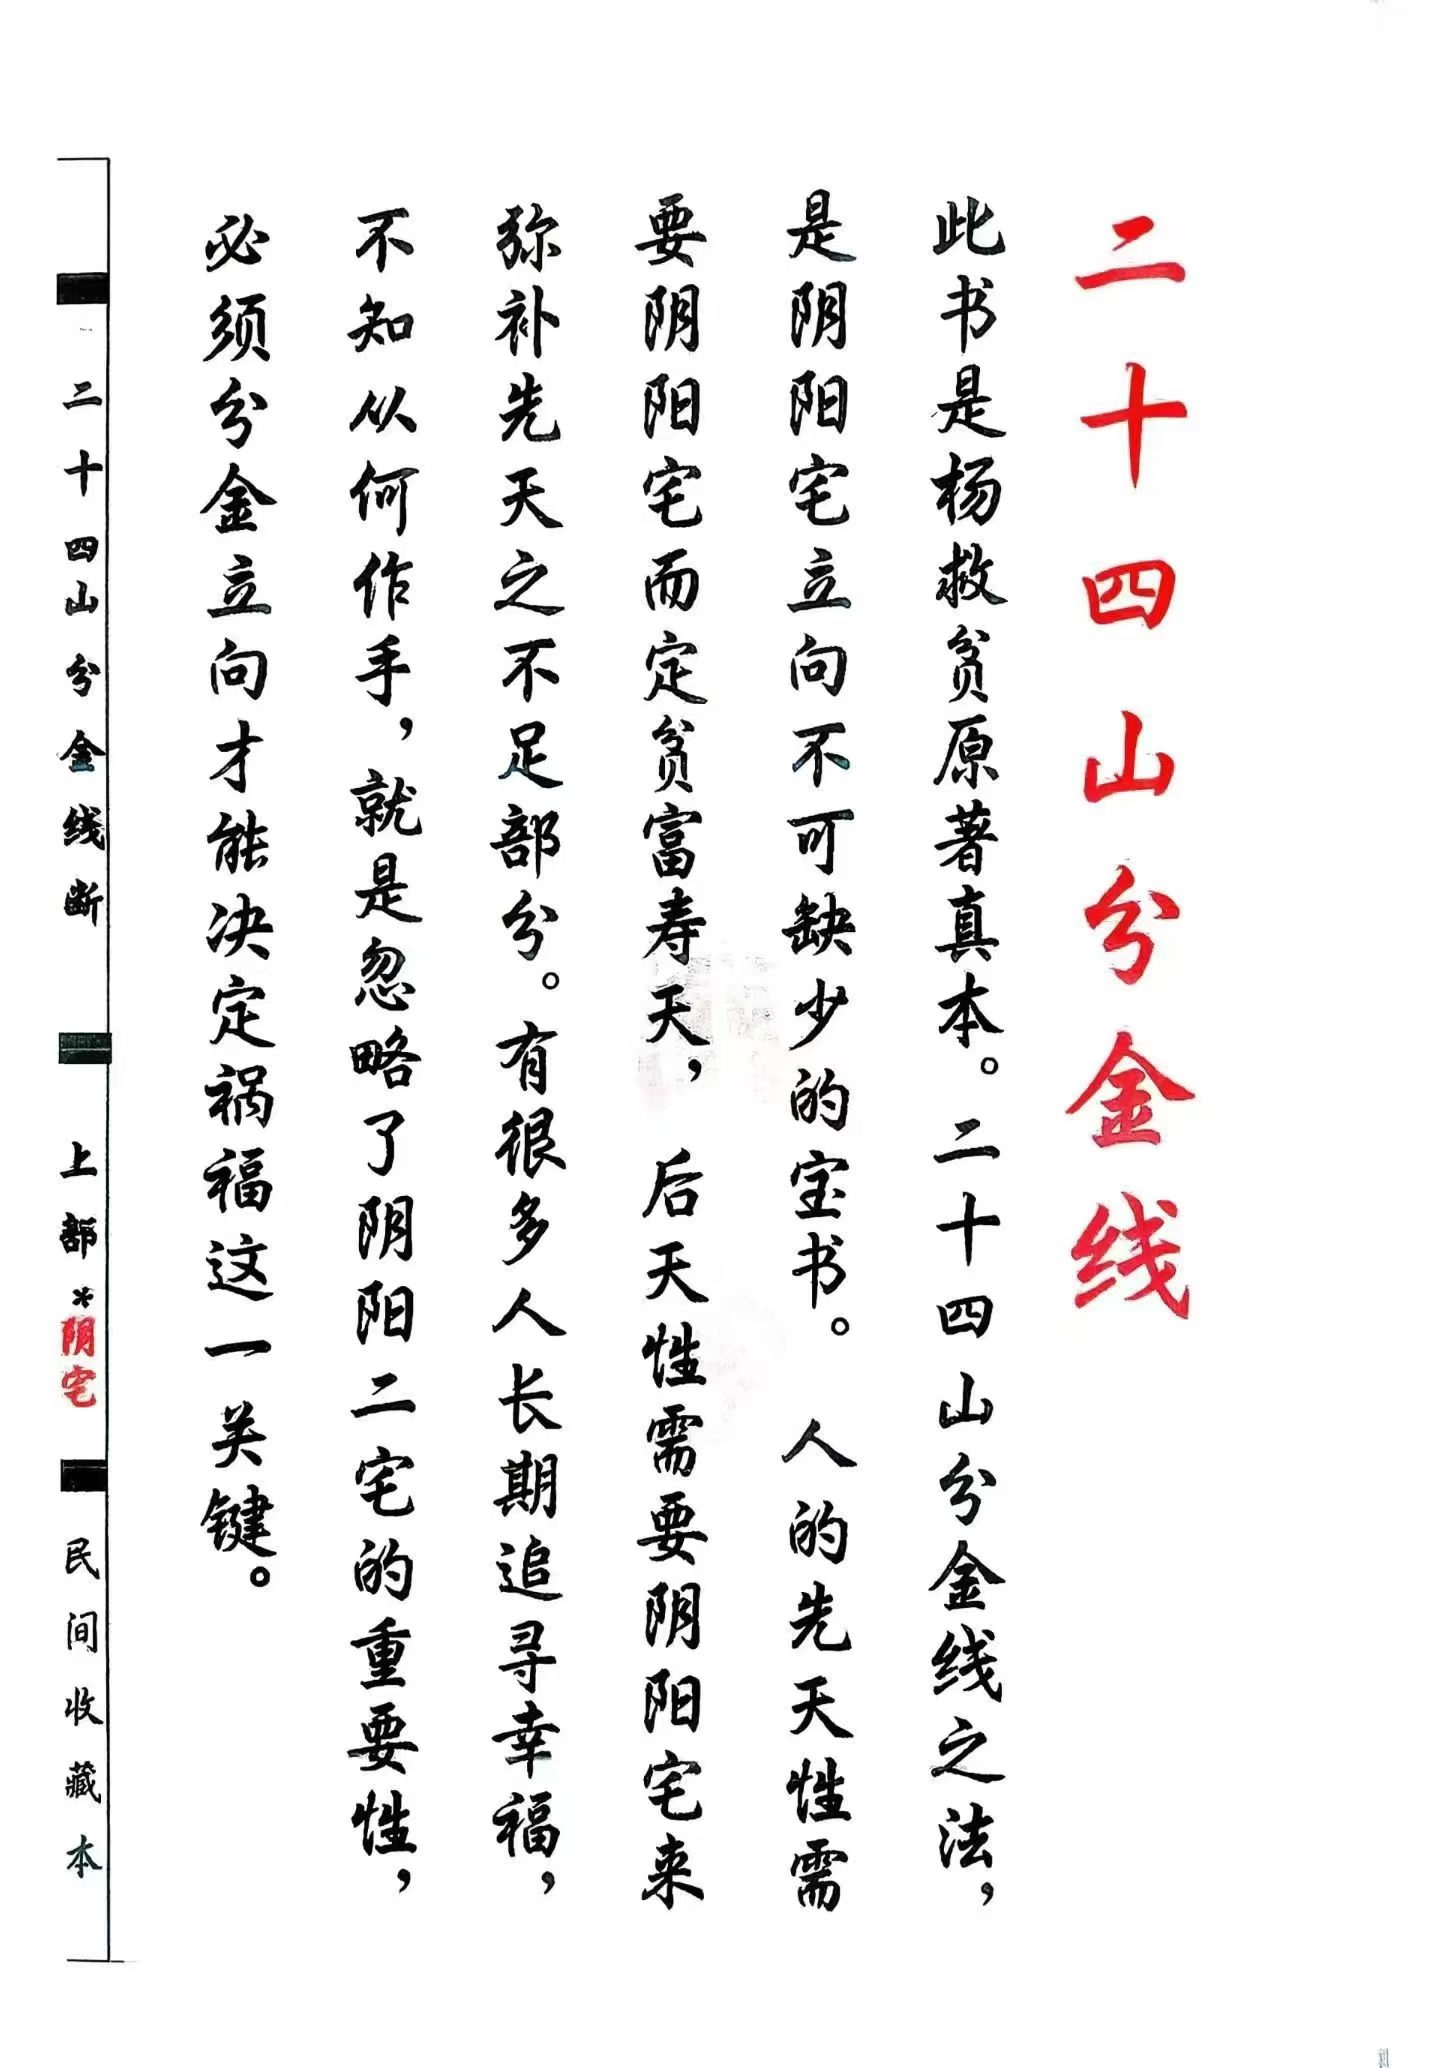 二十四山分金线
此书是杨救贫原著真本。二十四山分金线之法，
是阴阳宅立向不可缺少的宝书。人的先天性需
要阴阳宅而定贫富寿天，后天性需要阴阳宅来
弥补先天之不足部分。有很多人长期追寻幸福，
不知从何作手，就是忽略了阴阳二宅的重要性，
必须分金立向才能决定祸福这一关键。
二十四山分金线断
上部*阴宅
民间收藏本